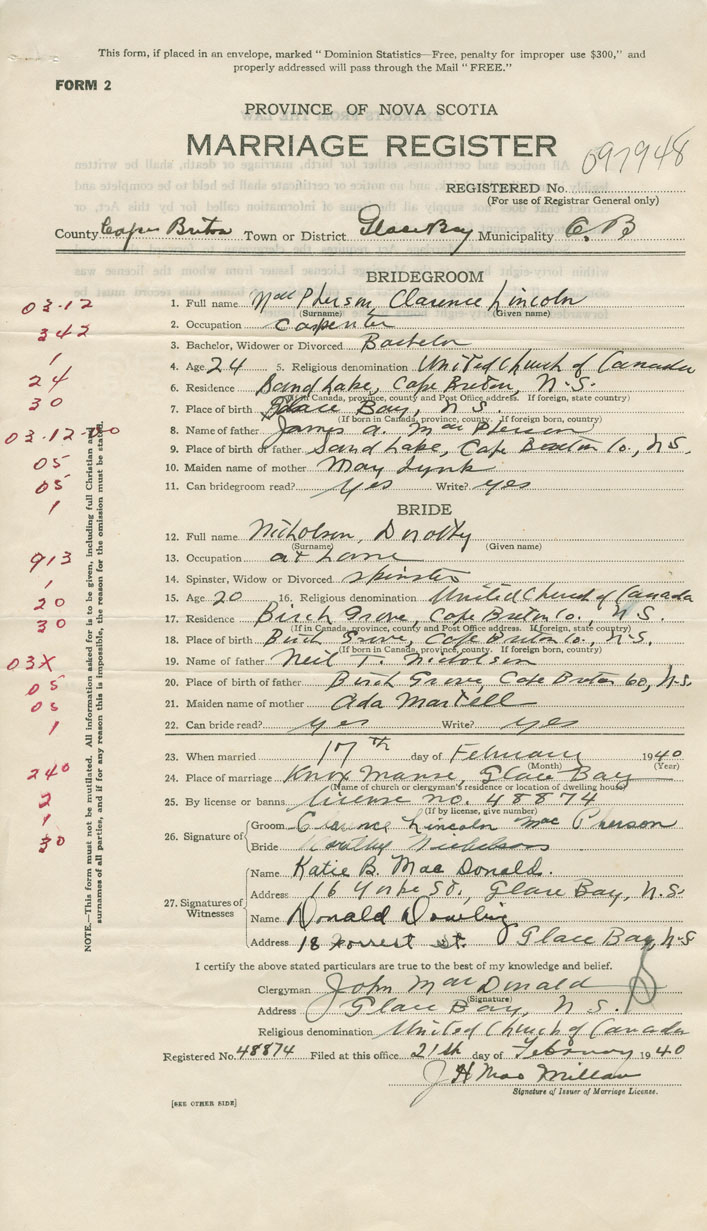 This form, if placed in an envelope, marked "Dominion Statistics—Free, penalty for improper use $300," and
properly addressed will pass through the Mail "FREE."
FORM 2
PROVINCE OF NOVA SCOTIA
MARRIAGE REGISTER
097948
REGISTERED No.
(For use of Registrar General only)
County Cape Breton Town or District Glace Bay Municipality C. B
BRIDEGROOM
03-12
1. Full name MacPherson, Clarence Lincoln
(Surname) (Given name)
342
2. Occupation Carpenter
1
3. Bachelor, Widower or Divorced Bachelor
24
4. Age 24 5. Religious denomination United Church of Canada
30
6. Residence Sand Lake, Cape Breton, N.S.
(If in Canada, province, county and Post Office address. If foreign, state country)
7. Place of birth Glace Bay, N.S.
(If born in Canada, province, county. If foreign born, country)
03-12
8. Name of father James A. MacPherson
05
9. Place of birth of father Sand Lake, Cape Breton Co., N.S.
05
10. Maiden name of mother May Lynk
1
11. Can bridegroom read? Yes Write? yes
BRIDE
12. Full name Nicholson, Dorothy
(Surname) (Given name)
913
13. Occupation at home
1
14. Spinster, Widow or Divorced Spinster
20
15. Age 20 16. Religious denomination United Church of Canada
30
17. Residence Birch Grove, Cape Breton Co., N.S.
(If in Canada, province, county and Post Office address. If foreign, state country)
18. Place of birth Birch Grove, Cape Breton Co., N.S.
(If born in Canada, province, county. If foreign born, country)
03X
19. Name of father Neil T. Nicholson
05
20. Place of birth of father Birch Grove, Cape Breton Co, N.S.
05
21. Maiden name of mother Ada Martell
1
22. Can bride read? yes Write? yes
23. When married 17th day of February 1940
(Month) (Year)
240
24. Place of marriage Knox Manse, Glace Bay
(Name of church or clergyman's residence or location of dwelling house)
2
25. By license or banns license no. 48874
(If by license, give number)
1
30
26. Signature of
Groom Clarence Lincoln MacPherson
Bride Dorothy Nicholson
27. Signatures of Witnesses
Name Katie B. MacDonald.
Address 16 Yorke St., Glace Bay, N.S.
Name Donald Dowling
Address 18 Forrest st. Glace Bay, N.S
NOTE.—This form must not be mutilated. All information asked for is to be given, including full Christian and
surnames of all parties, and if for any reason this is impossible, the reason for the omission must be stated.
I certify the above stated particulars are true to the best of my knowledge and belief.
Clergyman John MacDonald
(Signature)
Address Glace Bay, N.S.
Religious denomination United Church of Canada
Registered No. 48874 Filed at this office 21th day of February 1940
J H MacMillan
Signature of Issuer of Marriage License.
[SEE OTHER SIDE]